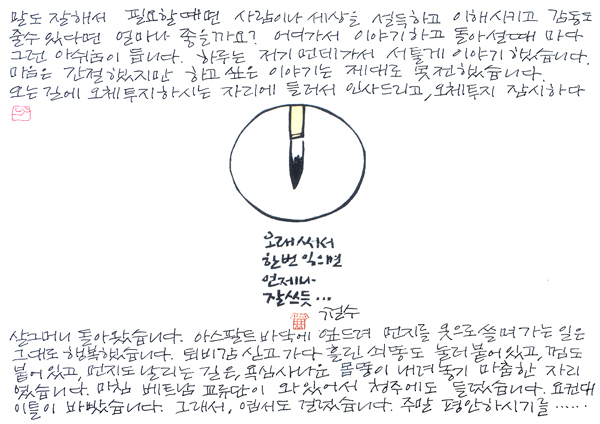 말도 잘해서 필요할 때면 사람이나 세상을 설득하고 이해시키고 감동도
줄수 있다면 얼마나 좋을까요? 어여가서 이야기하고 돌아설 때마다
그런 아쉬움이 듭니다. 하루는 저기 먼데가서 서툴게 이야기했습니다.
마음은 간절했지만 하고 싶은 이야기는 제대로 못전했습니다.
오는길에 오체투지하시는 자리에 들러서 인사드리고, 오체투지 잠시하다
오래 써서
한번 익으면
언제나
잘쓰듯...
살그머니 돌아왔습니다. 아스팔트 바닥에 엎드려 먼지를 옷으로 쓸며 가는 일은
그대로 행복했습니다. 퇴비감 싣고 가다 흘린 쇠똥도 눌러붙어 있고, 껌도
붙어있고, 먼지도 날리는 길은, 흑심사나운 몸땡이 내려놓기 마춤한 자리
였습니다. 마침 베트남 교류단이 와있어서 청주에도 들렀습니다. 요 몇
이틀이 바빴습니다. 그래서, 엽서도 걸렀습니다. 주말 평안하시기를......